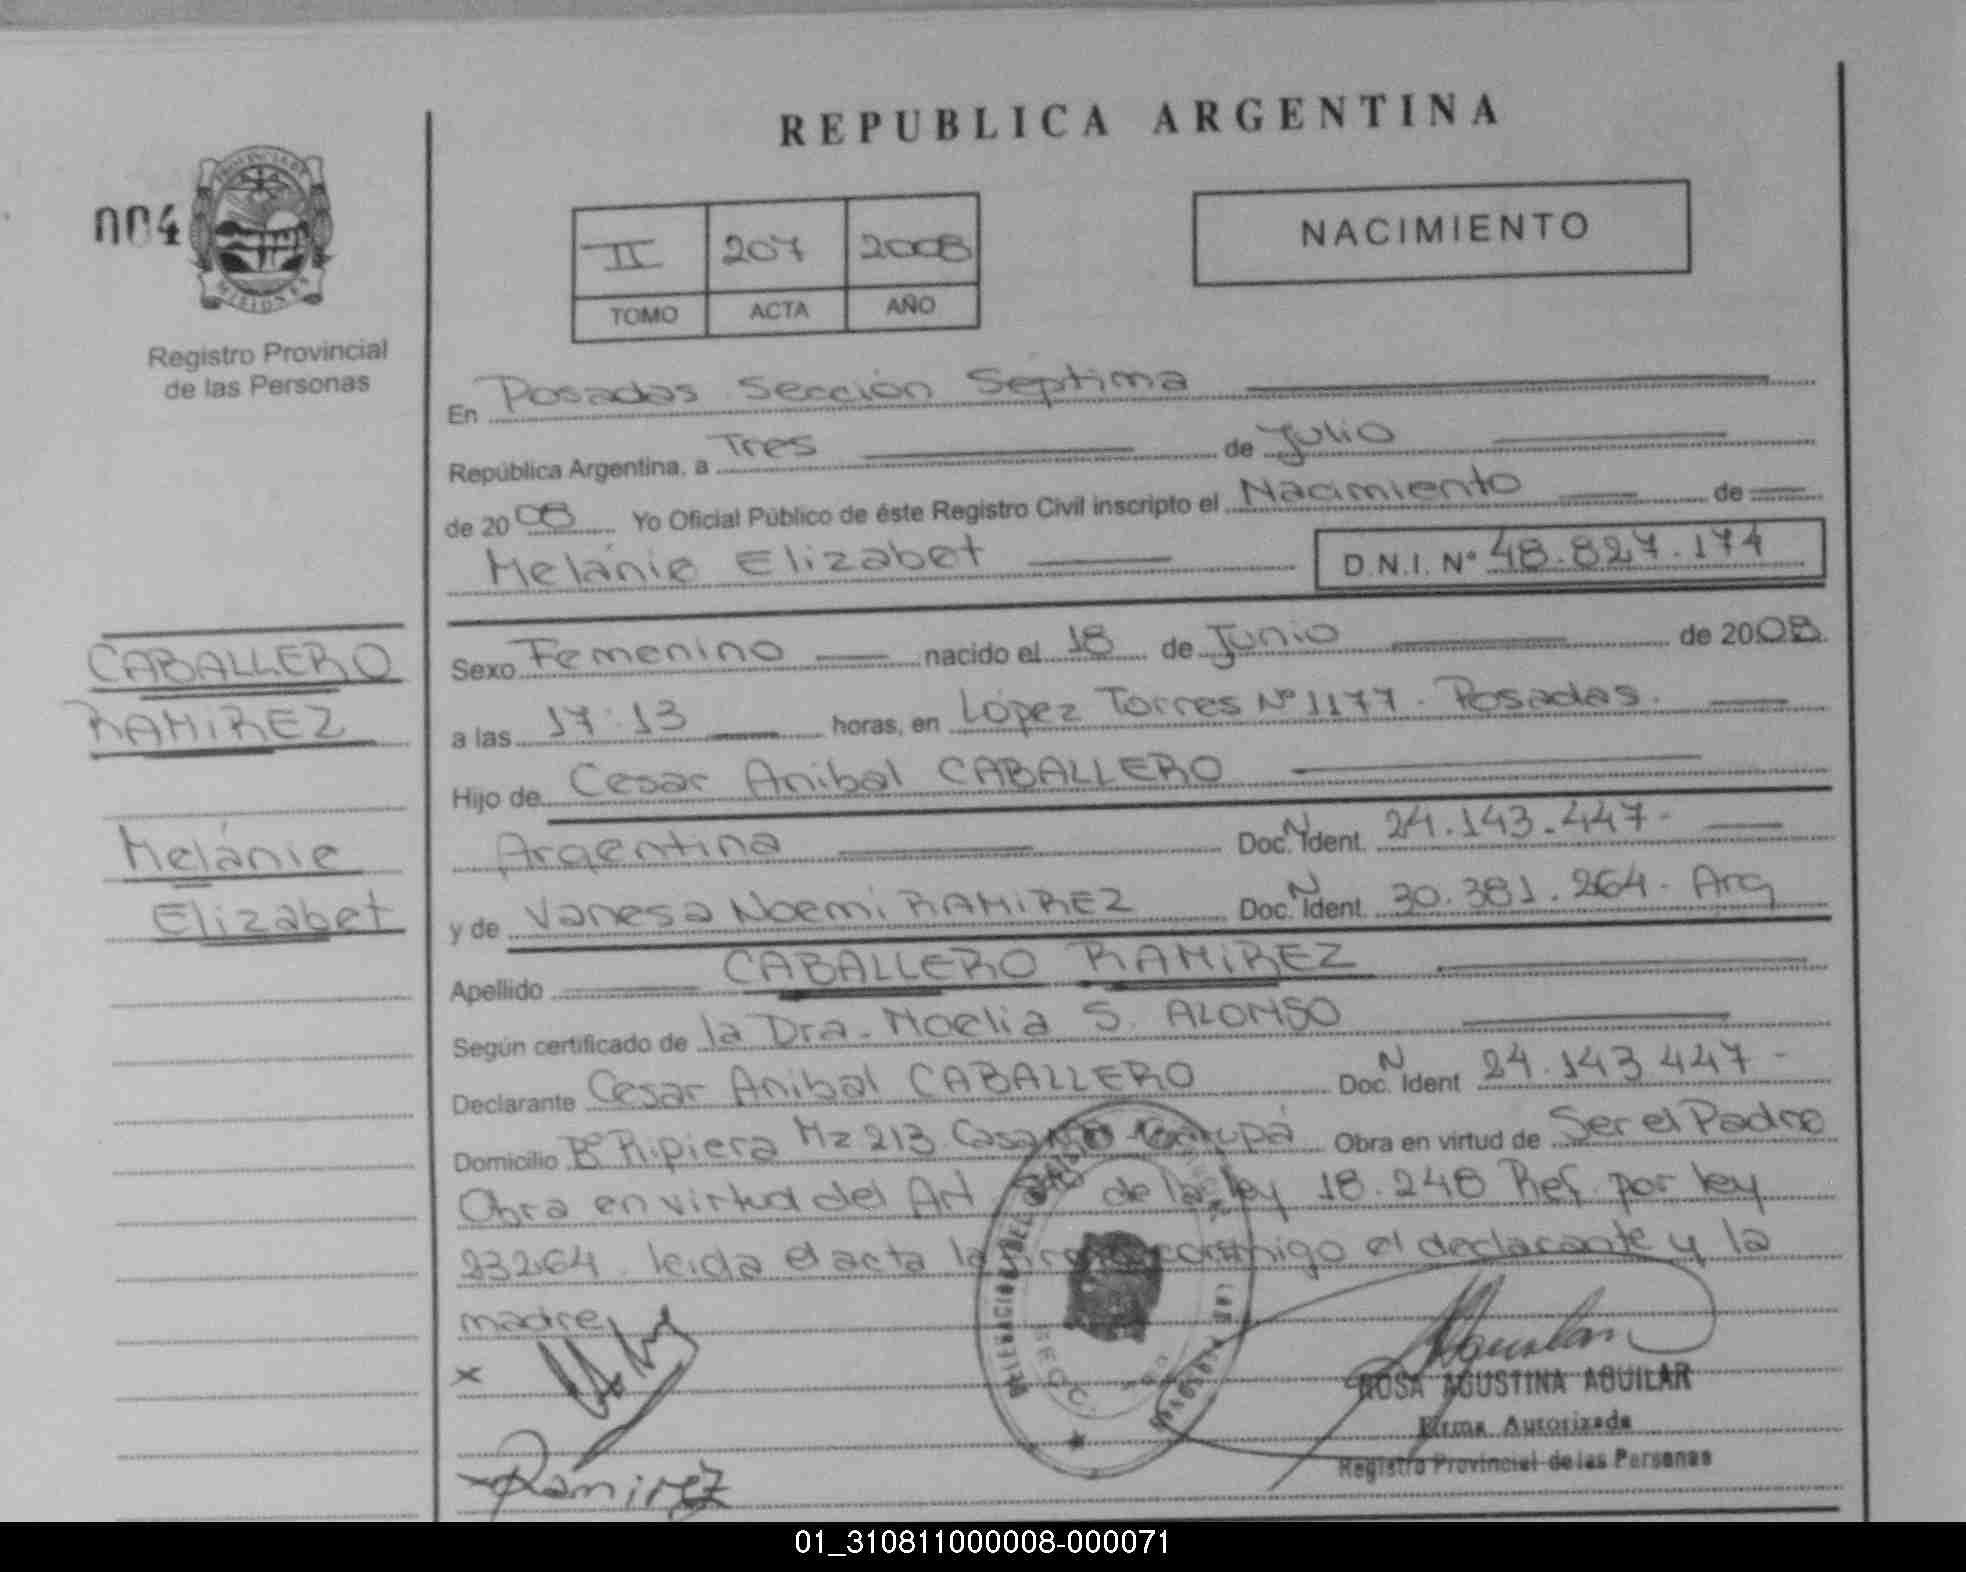 REPUBLICA ARGENTINA
004
PROVINCIA DE
MISIONES
Registro Provincial
de las Personas
II 207 2008
TOMO ACTA AÑO
NACIMIENTO
En Posadas Sección Septima
República Argentina, a Tres de Julio
de 2008 Yo Oficial Público de éste Registro Civil inscripto el Nacimiento de
Melánie Elizabet D.N.I. Nº 48.827.174
CABALLERO
RAMIREZ
Melánie
Elizabet
Sexo Femenino nacido el 18 de Junio de 2008.
a las 17:13 horas, en López Torres Nº 1177 - Posadas.
Hijo de Cesar Anibal CABALLERO
Argentina Doc. N Ident. 24.143.447-
y de Vanesa Noemi RAMIREZ Doc. N Ident. 30.381.264- Arg
Apellido CABALLERO RAMIREZ
Según certificado de la Dra. Noelia S. ALONSO
Declarante Cesar Anibal CABALLERO Doc. N Ident 24.143 447-
Domicilio Bº Ripiera Mz 213 Casa Obra en virtud de Ser el Padre
Obra en virtud del Art de la ley 18.248 Ref. por ley
23264. leida el acta la conmigo el declarante y la
madre
x
Ramirez
SECC.
ROSA AGUSTINA AGUILAR
Firma Autorizada
Registro Provincial de las Personas
01_310811000008-000071